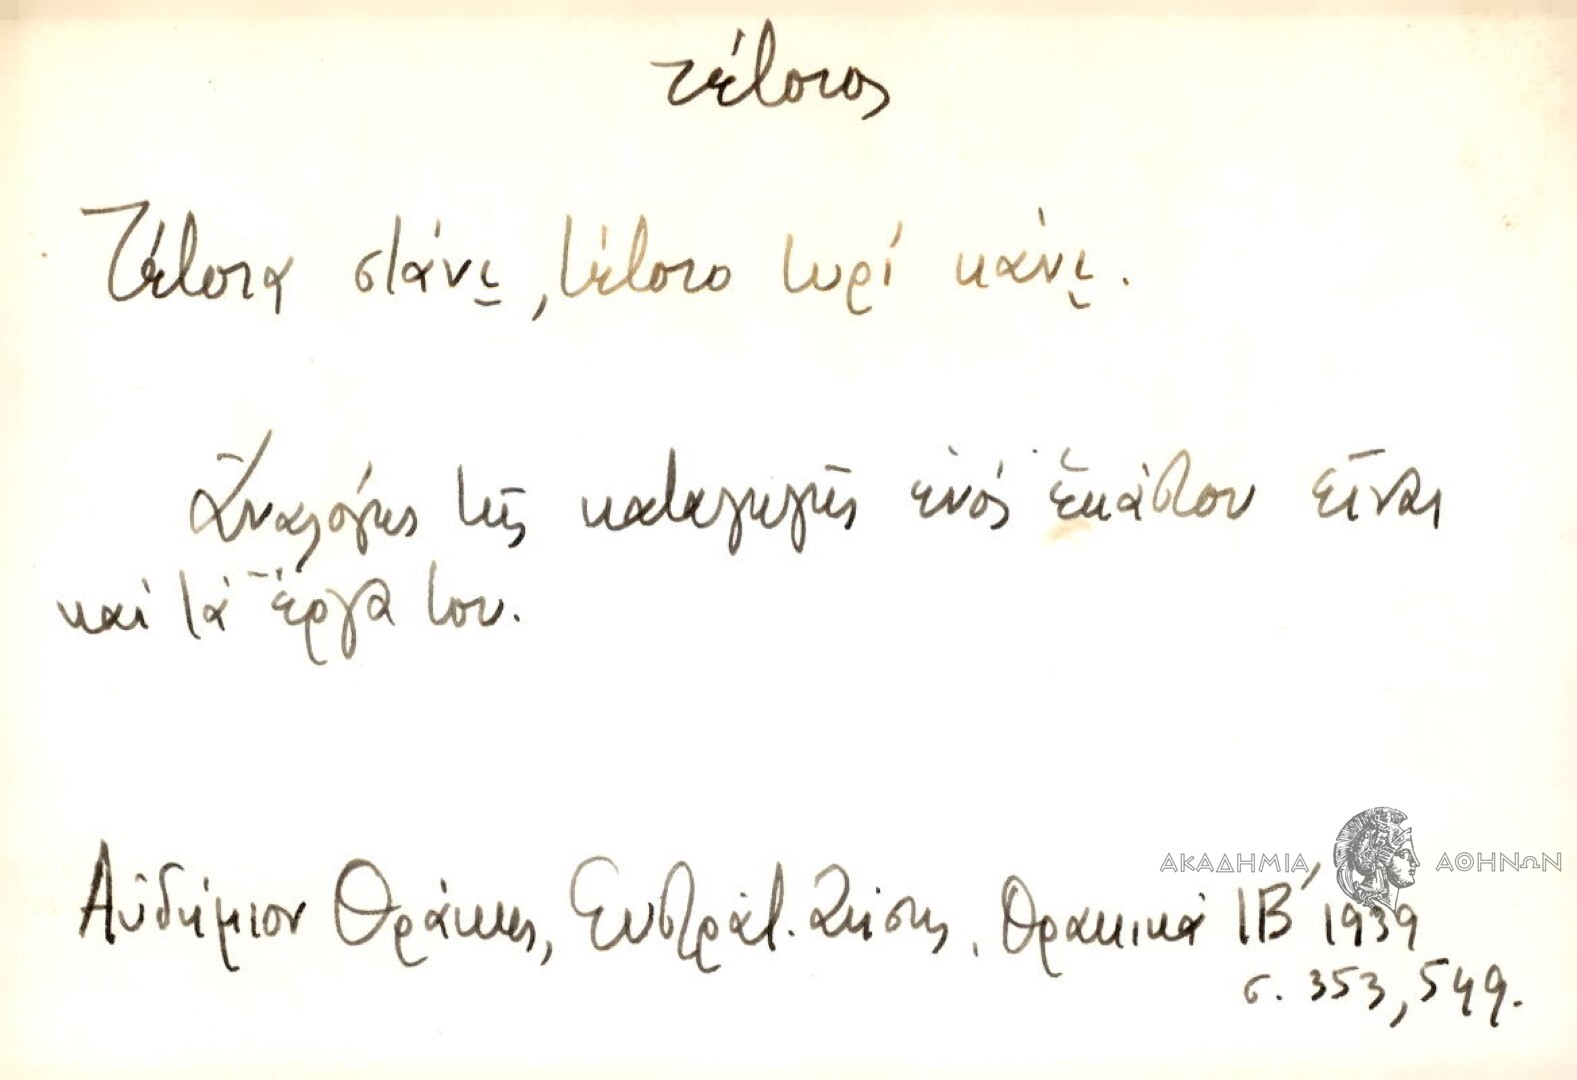 τέτοιος
Τέτοια στάνι̮, τέτοιο τυρί κάνι̮.
Ἀναλόγως τῆς καταγωγῆς ἑνός ἑκάστου εἶναι
καί τά ἔργα του.
Αὐδήμιον Θράκης, Εὐστράτ. Ζήσης, Θρακικά ΙΒ΄ 1939
σ. 353, 549.
ΑΚΑΔΗΜΙΑ ΑΘΗΝΩΝ